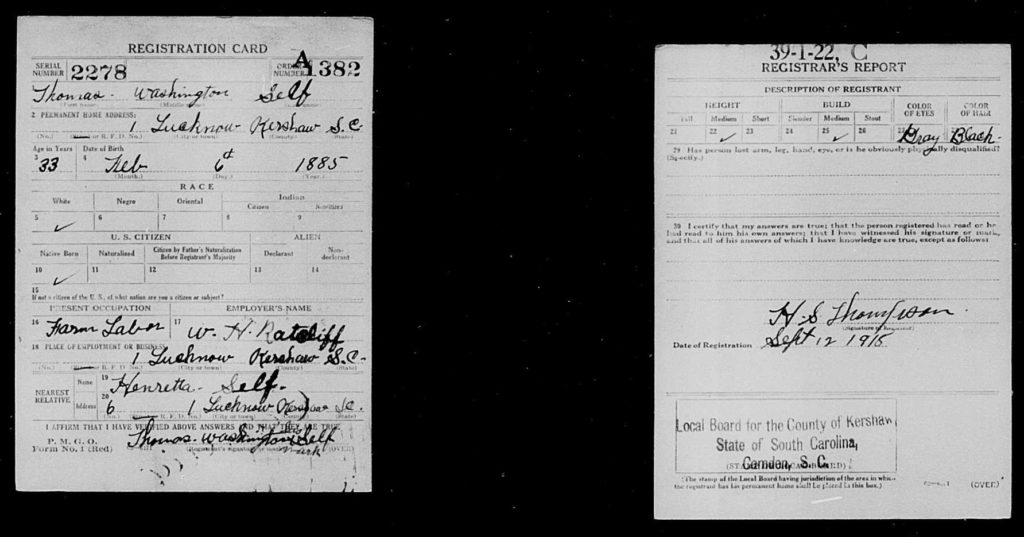 REGISTRATION CARD
SERIAL NUMBER 2278 ORDER NUMBER A1382
Thomas Washington Self
(First name) (Middle name)
2 PERMANENT HOME ADDRESS:
1 Lucknow Kershaw S.C.
(No.) (Street or R. F. D. No.) (City or town) (County) (State)
Age in Years Date of Birth
3 33 4 Feb 6th 1885
(Month.) (Day.) (Year.)
RACE
White Negro Oriental Indian
Citizen Noncitizen
5 ✓ 6 7 8 9
U. S. CITIZEN ALIEN
Native Born Naturalized Citizen by Father's Naturalization Before Registrant's Majority Declarant Non-declarant
10 ✓ 11 12 13 14
15
If not a citizen of the U. S., of what nation are you a citizen or subject?
PRESENT OCCUPATION EMPLOYER'S NAME
16 Farm Labor 17 W. H. Ratcliff
18 PLACE OF EMPLOYMENT OR BUSINESS:
1 Lucknow Kershaw S.C.
(No.) (Street or R. F. D. No.) (City or town) (County) (State)
NEAREST RELATIVE Name 19 Henretta Self
Address 20 6 1 Lucknow Kershaw S.C.
(No.) (Street or R. F. D. No.) (City or town) (County) (State)
I AFFIRM THAT I HAVE VERIFIED ABOVE ANSWERS AND THAT THEY ARE TRUE
P. M. G. O. Form No. 1 (Red) Thomas Washington Self
mark
(Registrant's signature or mark) (OVER)
39-1-22, C
REGISTRAR'S REPORT
DESCRIPTION OF REGISTRANT
HEIGHT BUILD COLOR OF EYES COLOR OF HAIR
Tall Medium Short Slender Medium Stout
21 22 ✓ 23 24 25 ✓ 26 27 Gray Black
29 Has person lost arm, leg, hand, eye, or is he obviously physically disqualified?
(Specify.)
30 I certify that my answers are true; that the person registered has read or has
had read to him his own answers; that I have witnessed his signature or mark,
and that all of his answers of which I have knowledge are true, except as follows:
H. S. Thompson
(Signature of Registrar)
Date of Registration Sept 12 1918
Local Board for the County of Kershaw
State of South Carolina,
Camden, S. C.
(STAMP OF LOCAL BOARD)
(The stamp of the Local Board having jurisdiction of the area in which
the registrant has his permanent home shall be placed in this box.)
(OVER)